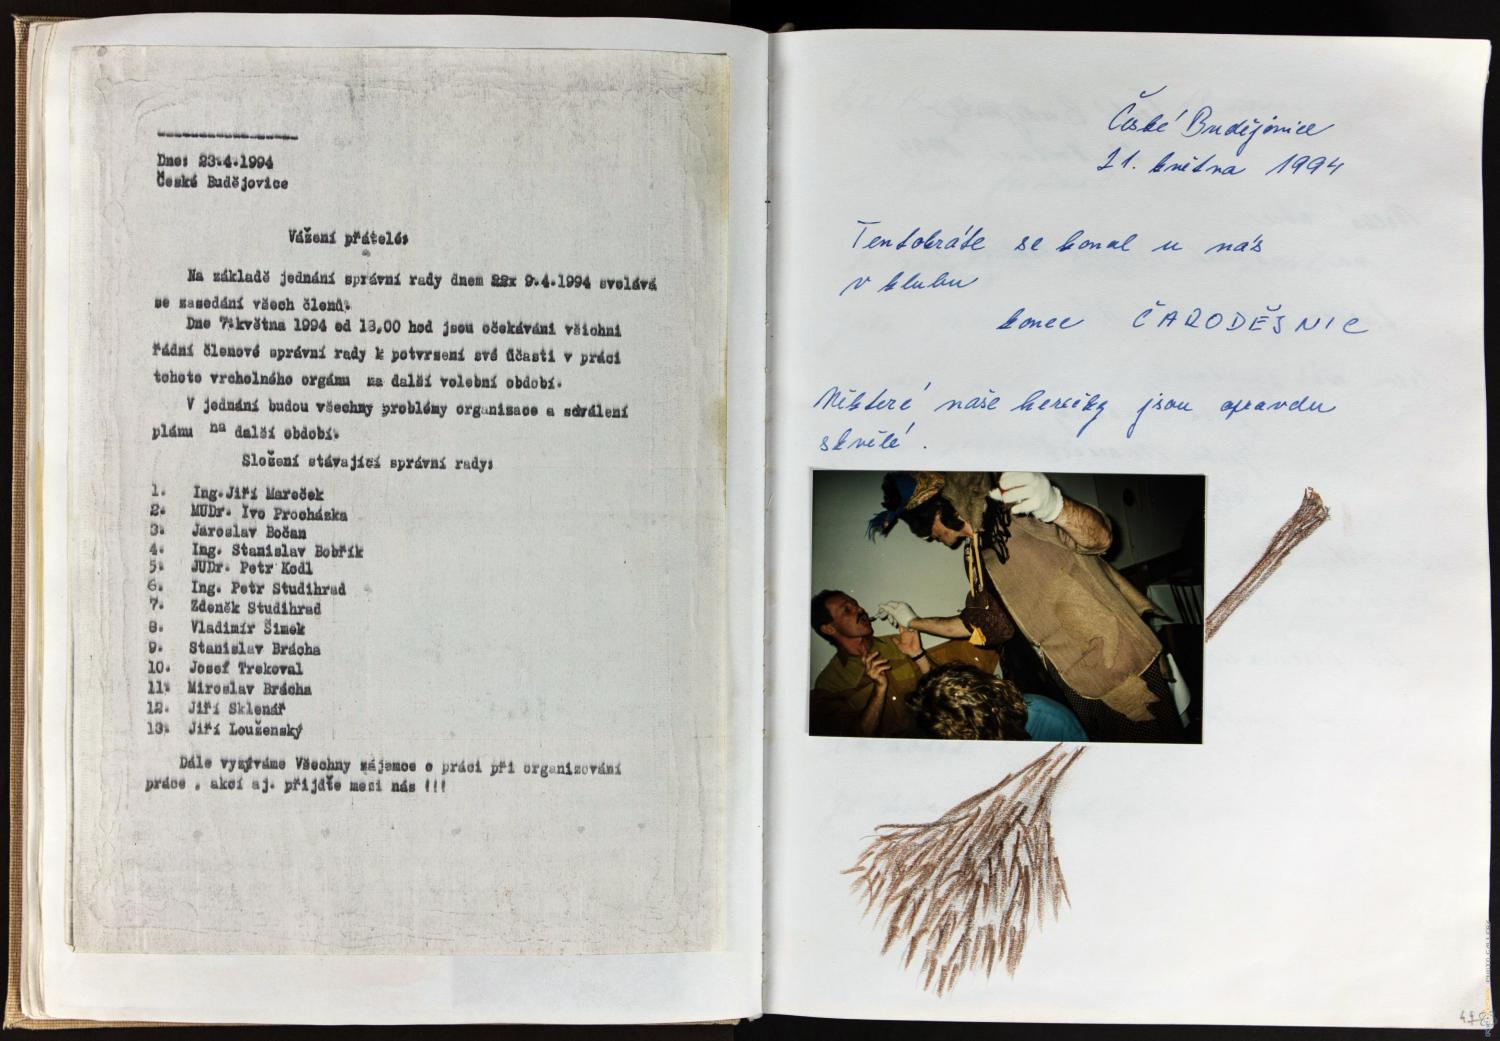 Dne: 23.4.1994
České Budějovice
Vážení přátelé:
Na základě jednání správní rady dnem 22x 9.4.1994 svolává
se zasedání všech členů.
Dne 7.května 1994 od 13,00 hod jsou očekáváni všichni
řádní členové správní rady k potvrzení své účasti v práci
tohoto vrcholného orgánu na další volební období.
V jednání budou všechny problémy organizace a schválení
plánu na další období.
Složení stávající správní rady:
1. Ing.Jiří Mareček
2. MUDr. Ivo Procházka
3. Jaroslav Bočan
4. Ing. Stanislav Bobřík
5. JUDr. Petr Kodl
6. Ing. Petr Studihrad
7. Zdeněk Studihrad
8. Vladimír Šimek
9. Stanislav Brácha
10. Josef Trskoval
11. Miroslav Brácha
12. Jiří Sklenář
13. Jiří Louženský
Dále vyzýváme Všechny zájemce o práci při organizování
práce , akcí aj. přijďte mezi nás !!!
České Budějovice
21. května 1994
Tentokráte se konal u nás
v klubu
konec ČARODĚJNIC
Některé naše herečky jsou opravdu
skvělé.